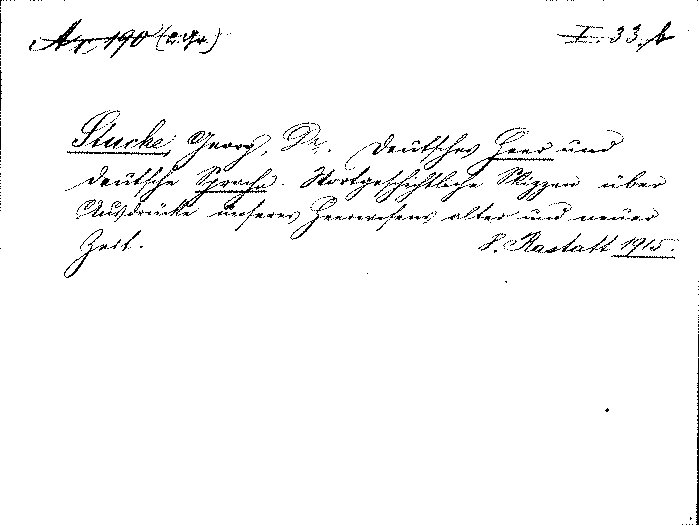 Ay 190 (c. Yr.) I. 33. b
Stucke, Georg, Dr. Deutsches Heer und
deutsche Sprache. Wortgeschichtliche Skizzen über
Ausdrücke unseres Heerwesens alter und neuer
Zeit. 8. Rastatt 1915.